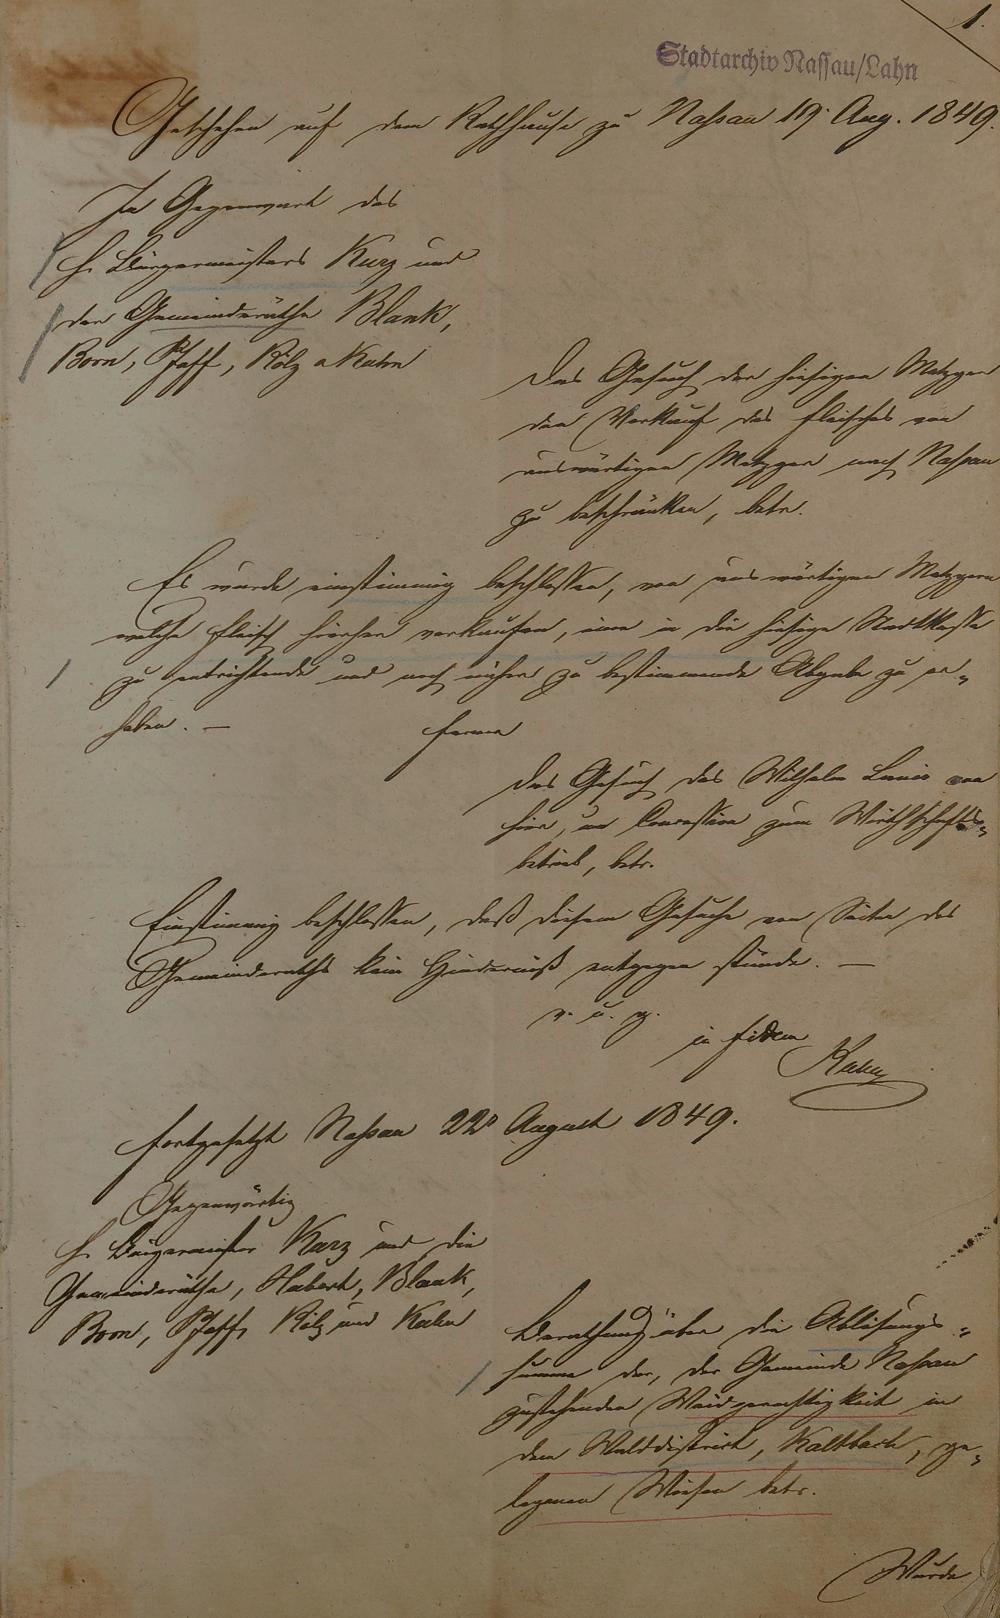 1.
Stadtarchiv Nassau/Lahn
Geschehen auf dem Rathhause zu Nassau 19. Aug. 1849.
In Gegenwart des
H. Bürgermeisters Kurz und
der Gemeinderäthe Blank,
Born, Pfaff, Rölz u Kuhn
Das Gesuch der hiesigen Metzger
den Verkauf des Fleisches von
auswärtigen Metzger nach Nassau
zu beschränken, betr.
Es wurde einstimmig beschlossen, von auswärtigen Metzgern
welche Fleisch hierher verkaufen, eine in die hiesige Stadtkasse
zu entrichtende und noch näher zu bestimmende Abgabe zu er„
heben. —
ferner
Das Gesuch des Wilhelm von
hier, um Concession zum Wirthschafts„
betrieb, betr.
Einstimmig beschlossen, daß diesem Gesuche von Seiten des
Gemeinderaths kein Hinderniß entgegen stünde. —
v. u. g.
in fidem
Fortgesetzt Nassau 22t August 1849.
Gegenwärtig
H. Bürgermeister Kurz und die
Gemeinderäthe, Hubert, Blank,
Born, Pfaff, Rölz und Kuhn
Berathung über die Ablösungs„
summe der, der Gemeinde Nassau
zustehenden Waidgerechtigkeit in
dem Walddistrict, Kaltbach, ge„
legenen Wiesen betr.
Wurde